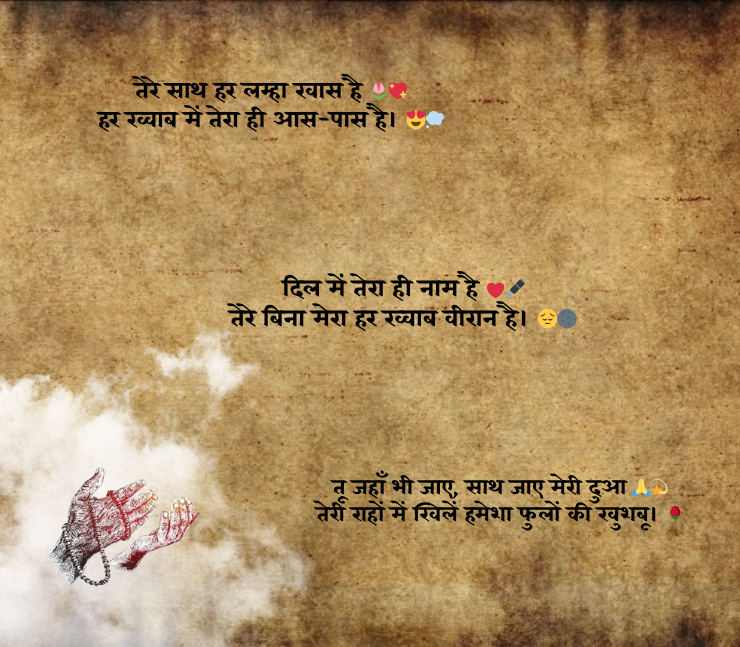 तेरे साथ हर लम्हा खास है 🌷💖
हर ख्वाब में तेरा ही आस-पास है। 😍💭
दिल में तेरा ही नाम है ❤️🖋️
तेरे बिना मेरा हर ख्वाब वीरान है। 😔🌑
तू जहाँ भी जाए, साथ जाए मेरी दुआ 🙏💫
तेरी राहों में खिलें हमेशा फुलों की खुशबू। 🌹